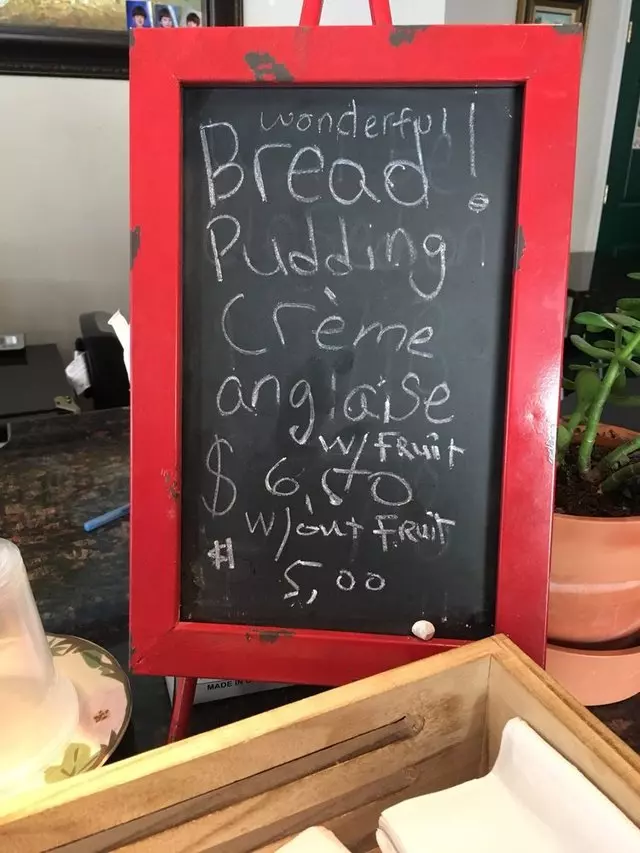 wonderful!
Bread
Pudding
Crème
anglaise
w/ FRuit
$ 6,50
w/out FRuit
$
5,00
MADE IN